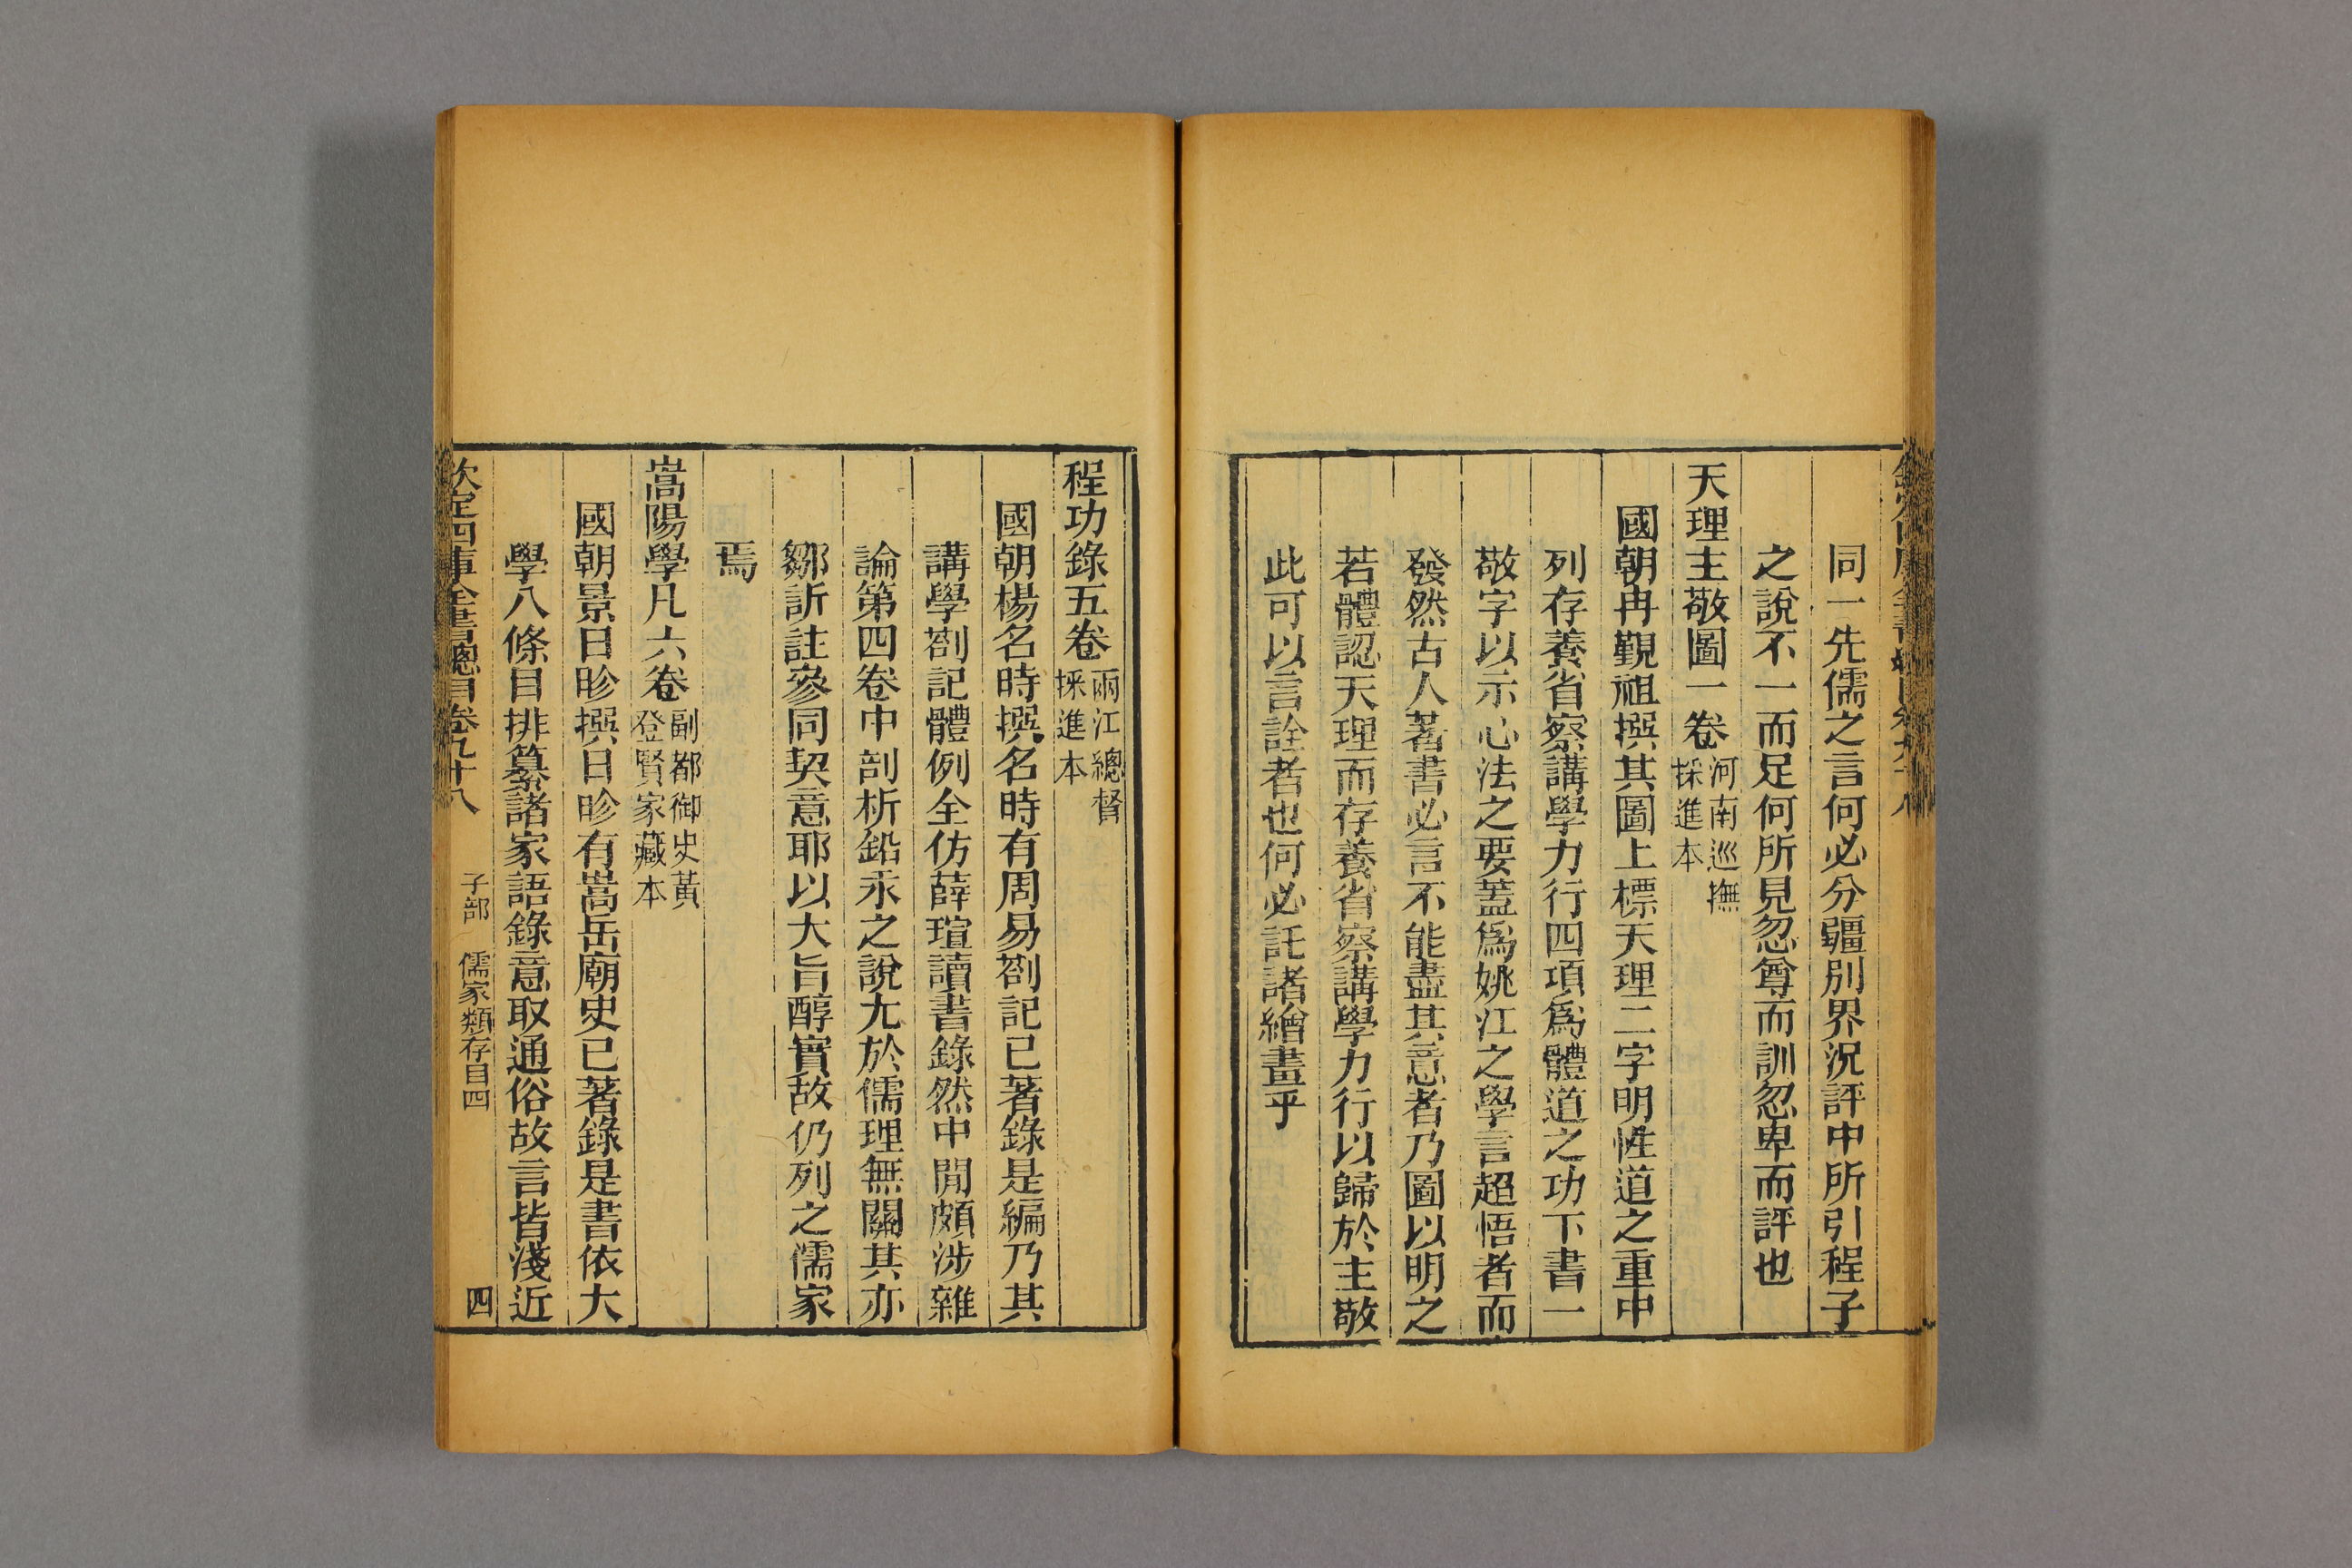 同一先儒之言何必分疆別界況評中所引程子
之說不一而足何所見忽尊而訓忽卑而評也
天理主敬圖一卷河南巡撫採進本
國朝冉覲祖撰其圖上標天理二字明性道之重中
列存養省察講學力行四項爲體道之功下書一
敬字以示心法之要蓋爲姚江之學言超悟者而
發然古人著書必言不能盡其意者乃圖以明之
若體認天理而存養省察講學力行以歸於主敬
此可以言詮者也何必託諸繪畫乎
程功錄五卷兩江總督採進本
國朝楊名時撰名時有周易劄記已著錄是編乃其
講學劄記體例全仿薛瑄讀書錄然中閒頗涉雜
論第四卷中剖析鉛汞之說尤於儒理無關其亦
鄒訢註參同契意耶以大旨醇實故仍列之儒家
焉
嵩陽學凡六卷副都御史黃登賢家藏本
國朝景日昣撰日昣有嵩岳廟史已著錄是書依大
學八條目排纂諸家語錄意取通俗故言皆淺近
欽定四庫全書總目卷九十八 子部 儒家類存目四 四